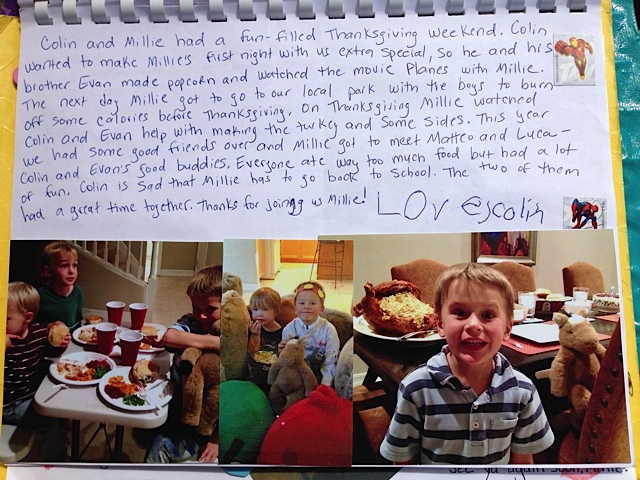 Colin and Millie had a fun-filled Thanksgiving weekend. Colin
wanted to make Millie's first night with us extra special, so he and his
brother Evan made popcorn and watched the movie Planes with Millie.
The next day Millie got to go to our local park with the boys to burn
off some calories before Thanksgiving. On Thanksgiving Millie watched
Colin and Evan help with making the turkey and some sides. This year
we had some good friends over and Millie got to meet Matteo and Luca -
Colin and Evan's good buddies. Everyone ate way too much food but had a lot
of fun. Colin is sad that Millie has to go back to school. The two of them
had a great time together. Thanks for joining us Millie!
LOvescolin
see ya again soon,